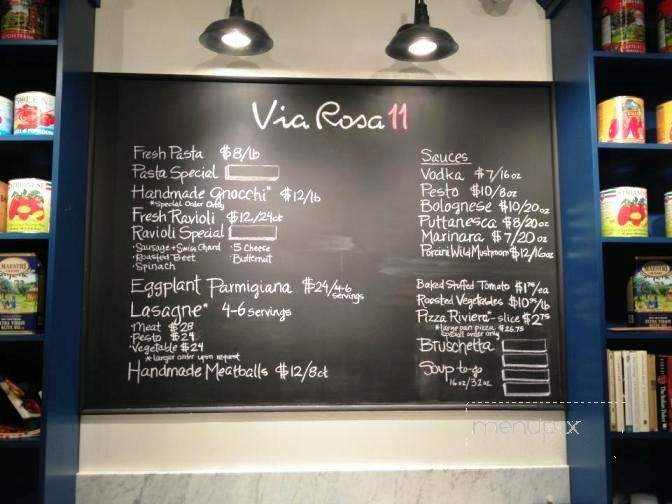 Via Rosa 11
Fresh Pasta $8/lb
Pasta Special
Handmade Gnocchi* $12/lb
*Special Order Only
Fresh Ravioli $12/24ct
Ravioli Special
·Sausage + Swiss Chard ·5 Cheese
·Roasted Beet ·Butternut
·Spinach
Eggplant Parmigiana $24/4-6 servings
Lasagne* 4-6 servings
Meat $28
Pesto $24
Vegetable $24
*larger order upon request
Handmade Meatballs $12/8ct
Sauces
Vodka $7/16oz
Pesto $10/8oz
Bolognese $10/20oz
Puttanesca $8/20oz
Marinara $7/20oz
Porcini Wild Mushroom $12/16oz
Baked Stuffed Tomato $1⁷⁵/ea
Roasted Vegetables /lb
Pizza Riviera*-slice $2⁷⁵
*large pan pizza $26.75
special order only
Bruschetta
Soup to-go
16oz/32oz
menupix